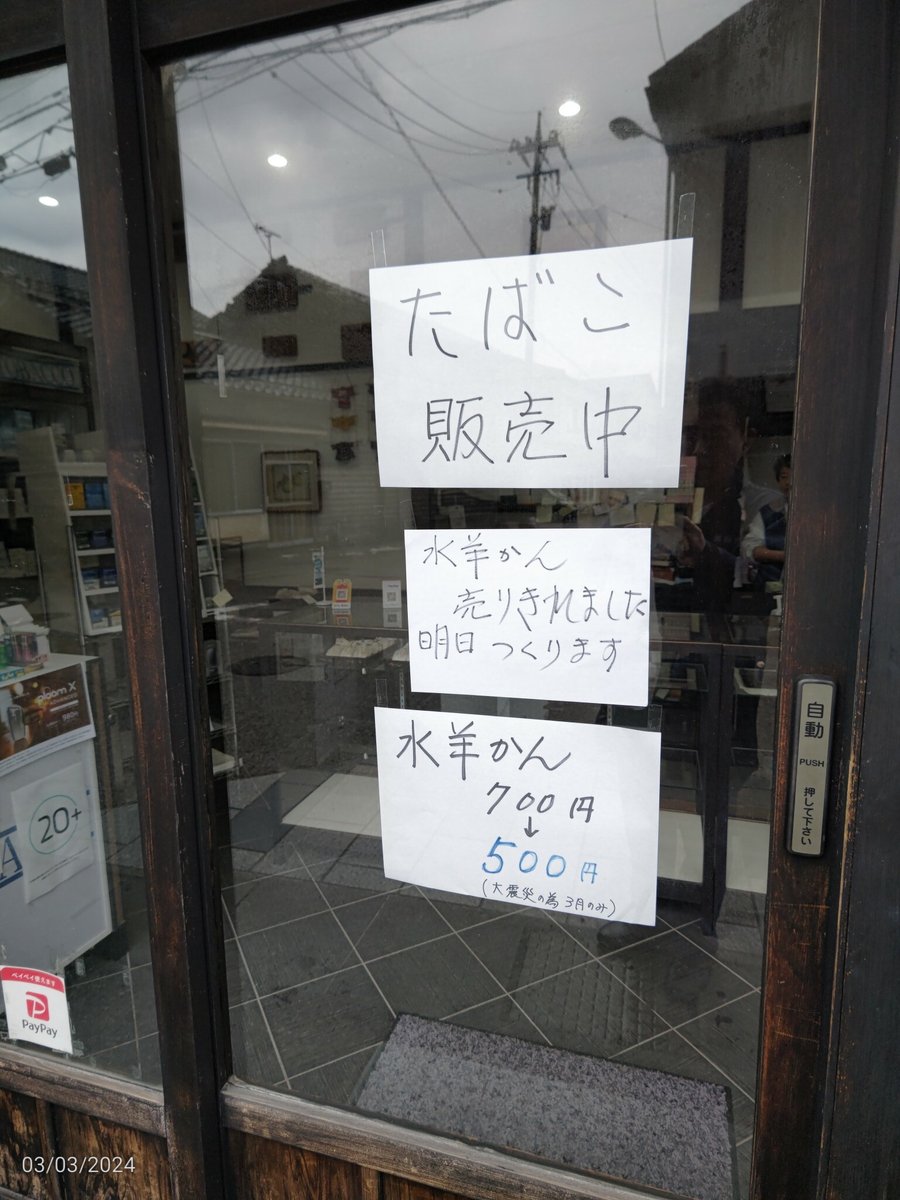 たばこ
販売中
水羊かん
売りきれました
明日 つくります
水羊かん
700円
↓
500円
(大震災の為 3月のみ)
自動
PUSH
押して下さい
ploom X
20+
A
ペイペイ使えます
PayPay
03/03/2024